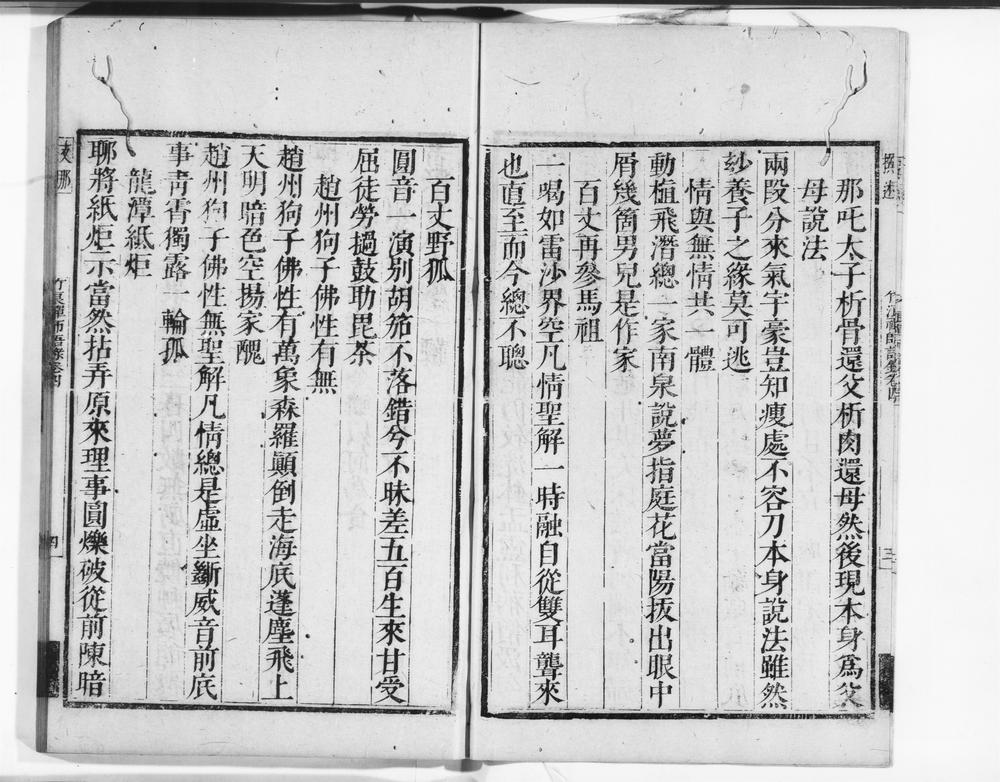 那吒太子析骨還父析肉還母然後現本身爲父
母說法
兩段分來氣宇豪豈知痩處不容刀本身說法雖然
玅養子之緣莫可逃
情與無情共一體
動植飛潛總一家南泉說夢指庭花當陽拔出眼中
屑幾箇男兒是作家
百丈再參馬祖
一喝如雷沙界空凡情聖解一時融自從雙耳聾來
也直至而今總不聰
百丈野狐
圓音一演別胡笳不落錯兮不昧差五百生來甘受
屈徒勞撾鼓助毘茶
趙州狗子佛性有無
趙州狗子佛性有萬象森羅顚倒走海底蓬塵飛上
天明暗色空揚家醜
趙州狗子佛性無聖解凡情總是虛坐斷威音前底
事靑霄獨露一輪孤
龍潭紙炬
聊將紙炬示當然拈弄原來理事圓爍破從前陳暗
四